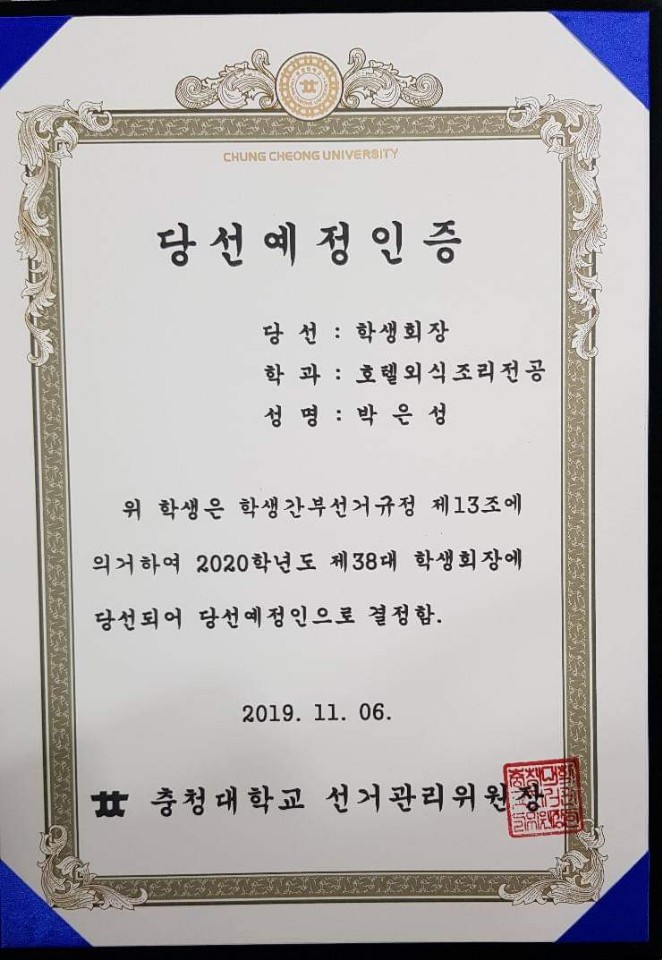 CHUNG CHEONG UNIVERSITY
당선예정인증
당 선 : 학생회장
학 과 : 호텔외식조리전공
성 명 : 박 은 성
위 학생은 학생간부선거규정 제13조에
의거하여 2020학년도 제38대 학생회장에
당선되어 당선예정인으로 결정함.
2019. 11. 06.
충청대학교 선거관리위원장